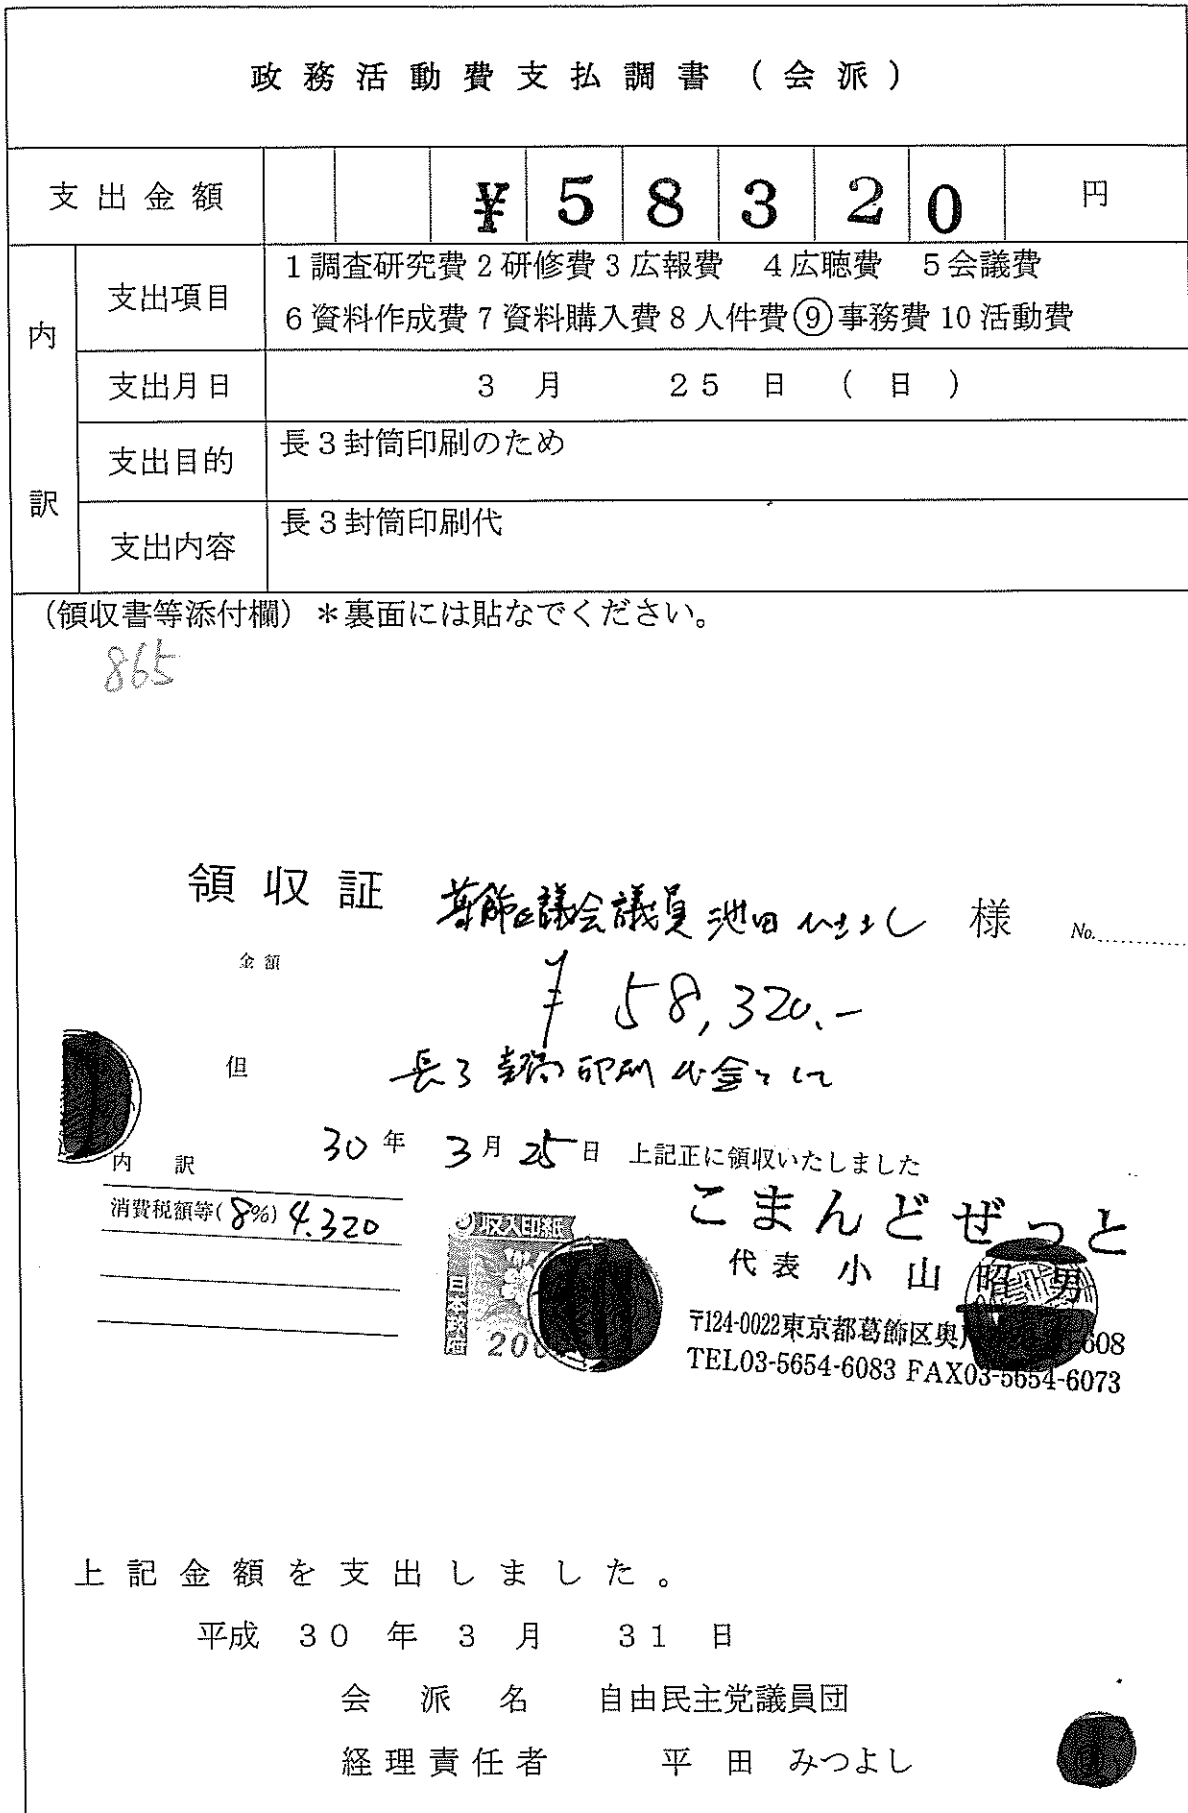 政務活動費支払調書（会派）
支出金額 ￥58320 円
内訳
支出項目 1調査研究費 2研修費 3広報費 4広聴費 5会議費
6資料作成費 7資料購入費 8人件費 ⑨事務費 10活動費
支出月日 3月 25日 （日）
支出目的 長3封筒印刷のため
支出内容 長3封筒印刷代
（領収書等添付欄）＊裏面には貼なでください。
865
領収証 葛飾区議会議員 池田ひさよし 様 No.
金額 ￥58,320.-
但 長3封筒印刷代金として
30年 3月 25日 上記正に領収いたしました
内訳
消費税額等(8%) 4.320
収入印紙
日本政府
200
こまんどぜっと
代表 小山昭男
〒124-0022東京都葛飾区奥 608
TEL03-5654-6083 FAX03-5654-6073
上記金額を支出しました。
平成 30年 3月 31日
会派名 自由民主党議員団
経理責任者 平田 みつよし